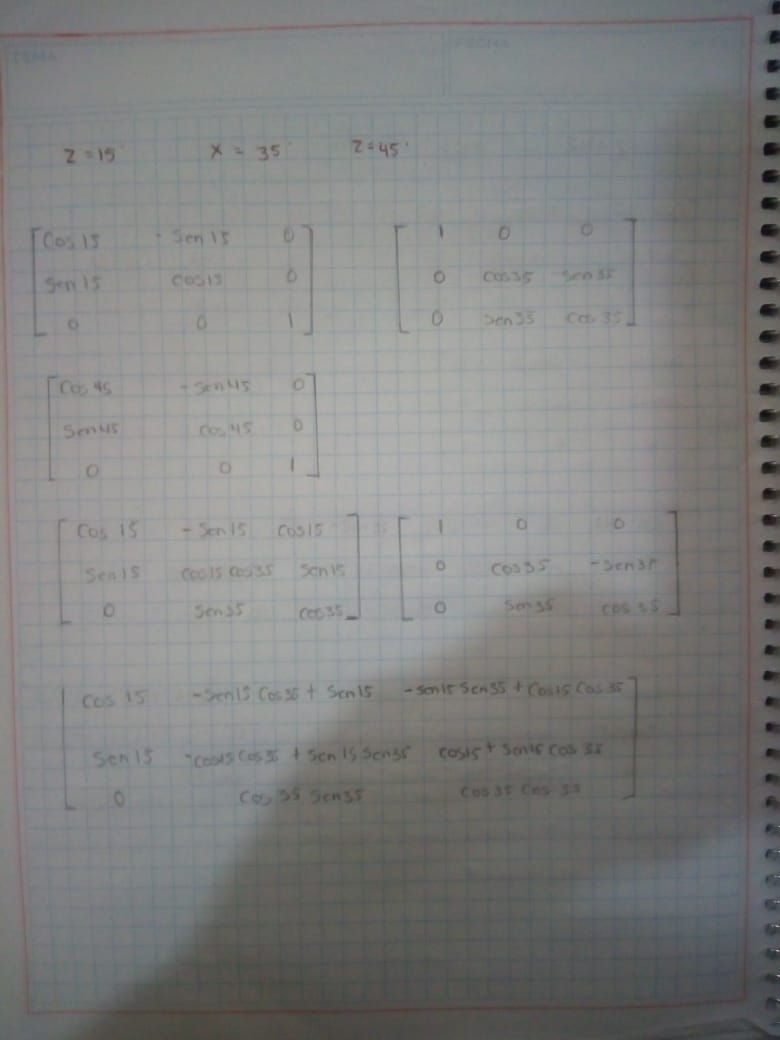 TEMA
FECHA
Z = 15° X = 35° Z = 45°
Cos 15 - Sen 15 0 1 0 0
Sen 15 cos 15 0 0 cos 35 sen 35
0 0 1 0 sen 35 cos 35
Cos 45 - Sen 45 0
Sen 45 cos 45 0
0 0 1
Cos 15 - Sen 15 cos 15 1 0 0
Sen 15 cos 15 cos 35 Sen 15 0 cos 35 - Sen 35
0 Sen 35 cos 35 0 Sen 35 cos 35
Cos 15 - Sen 15 Cos 35 + Sen 15 - Sen 15 Sen 35 + Cos 15 Cos 35
Sen 15 - cos 15 Cos 35 + Sen 15 Sen 35 cos 15 + Sen 15 cos 35
0 Cos 35 Sen 35 Cos 35 Cos 35